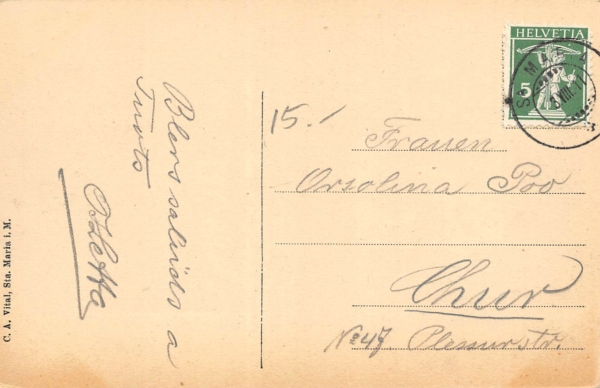 C. A. Vital, Sta. Maria i. M.
Blers salüds a
Tuots
15.-
HELVETIA
5
Frauen
Orsolina Poo
Chur
No 47. Plessurstr.